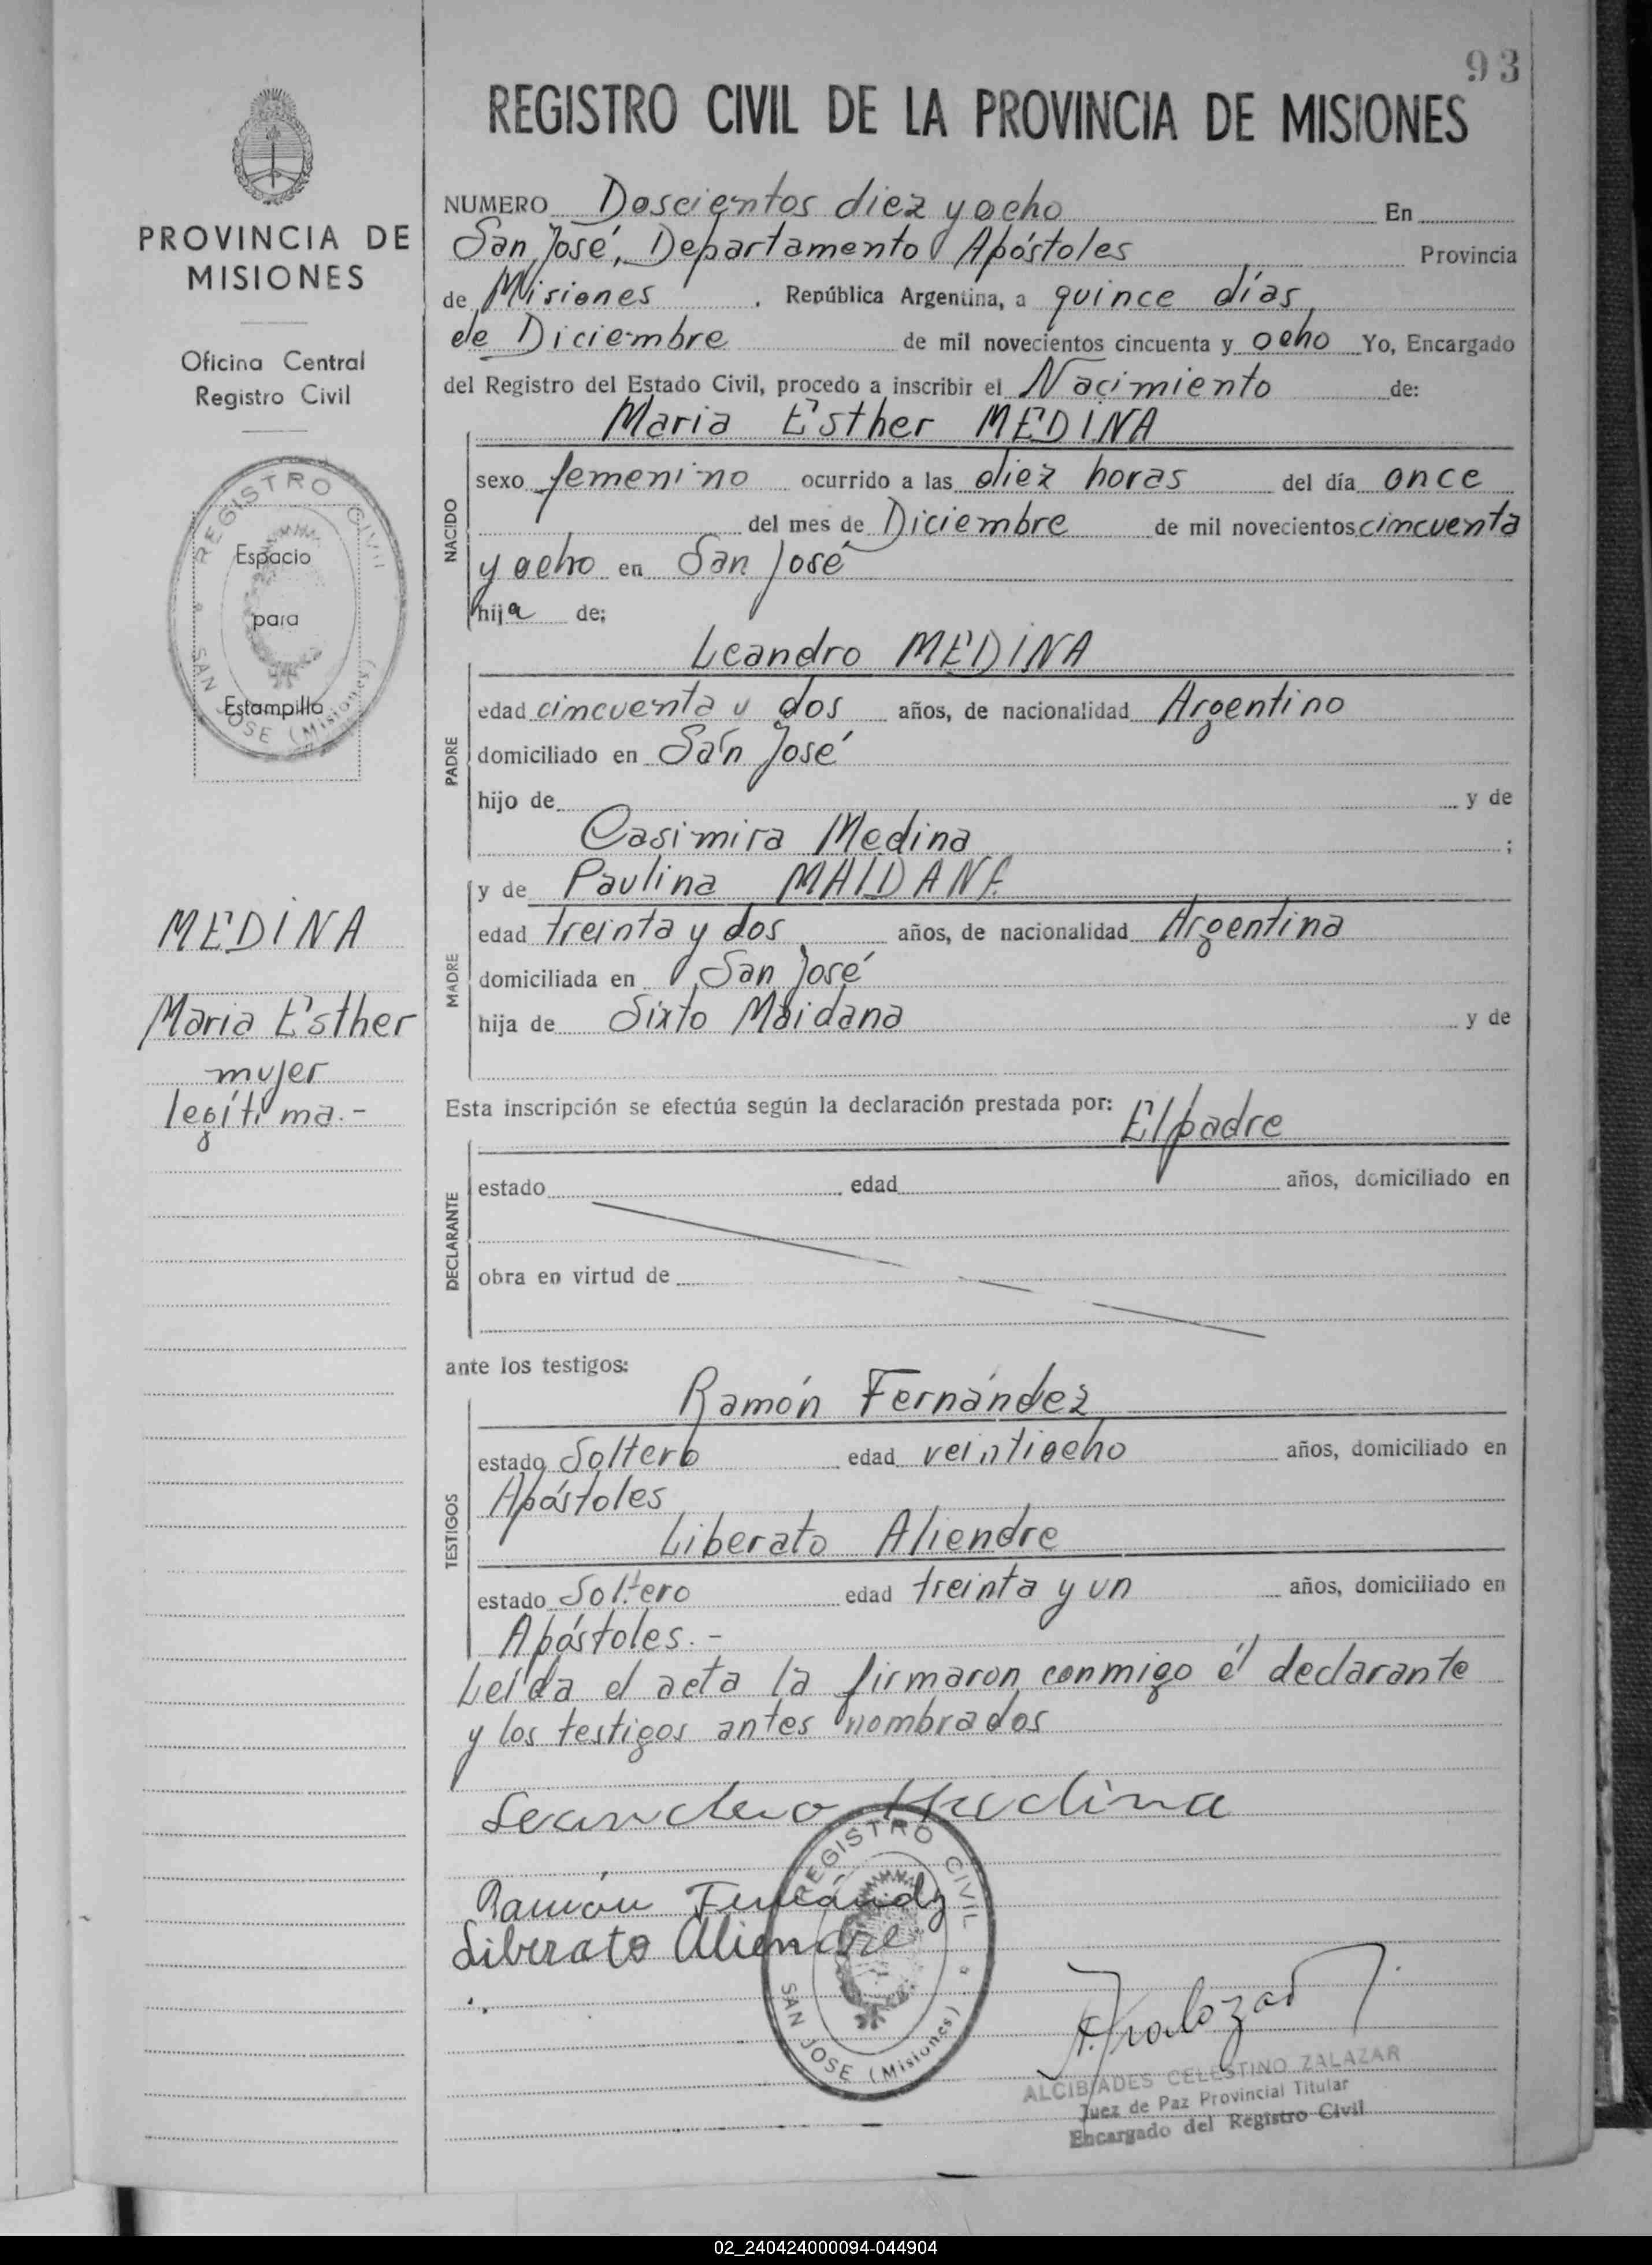 93
REGISTRO CIVIL DE LA PROVINCIA DE MISIONES
PROVINCIA DE
MISIONES
Oficina Central
Registro Civil
REGISTRO CIVIL
Espacio
para
Estampilla
SAN JOSE (Misiones)
MEDINA
Maria Esther
mujer
legítima.-
NUMERO Doscientos diez y ocho En
San José, Departamento Apóstoles Provincia
de Misiones, República Argentina, a quince días
de Diciembre de mil novecientos cincuenta y ocho Yo, Encargado
del Registro del Estado Civil, procedo a inscribir el Nacimiento de:
Maria Esther MEDINA
NACIDO
sexo femenino ocurrido a las diez horas del día once
del mes de Diciembre de mil novecientos cincuenta
y ocho en San José
hija de:
Leandro MEDINA
PADRE
edad cincuenta y dos años, de nacionalidad Argentino
domiciliado en San José
hijo de y de
Casimira Medina ;
y de Paulina MAIDANA
MADRE
edad treinta y dos años, de nacionalidad Argentina
domiciliada en San José
hija de Sixto Maidana y de
Esta inscripción se efectúa según la declaración prestada por:
El padre
DECLARANTE
estado edad años, domiciliado en
obra en virtud de
ante los testigos:
Ramón Fernández
TESTIGOS
estado Soltero edad veintiocho años, domiciliado en
Apóstoles
Liberato Aliendre
estado Soltero edad treinta y un años, domiciliado en
Apóstoles.-
Leída el acta la firmaron conmigo él declarante
y los testigos antes nombrados
Leandero Medina
Ramón Fernández
Liberato Aliendre
REGISTRO CIVIL
SAN JOSE (Misiones)
ALCIBIADES CELESTINO ZALAZAR
Juez de Paz Provincial Titular
Encargado del Registro Civil
02_240424000094-044904